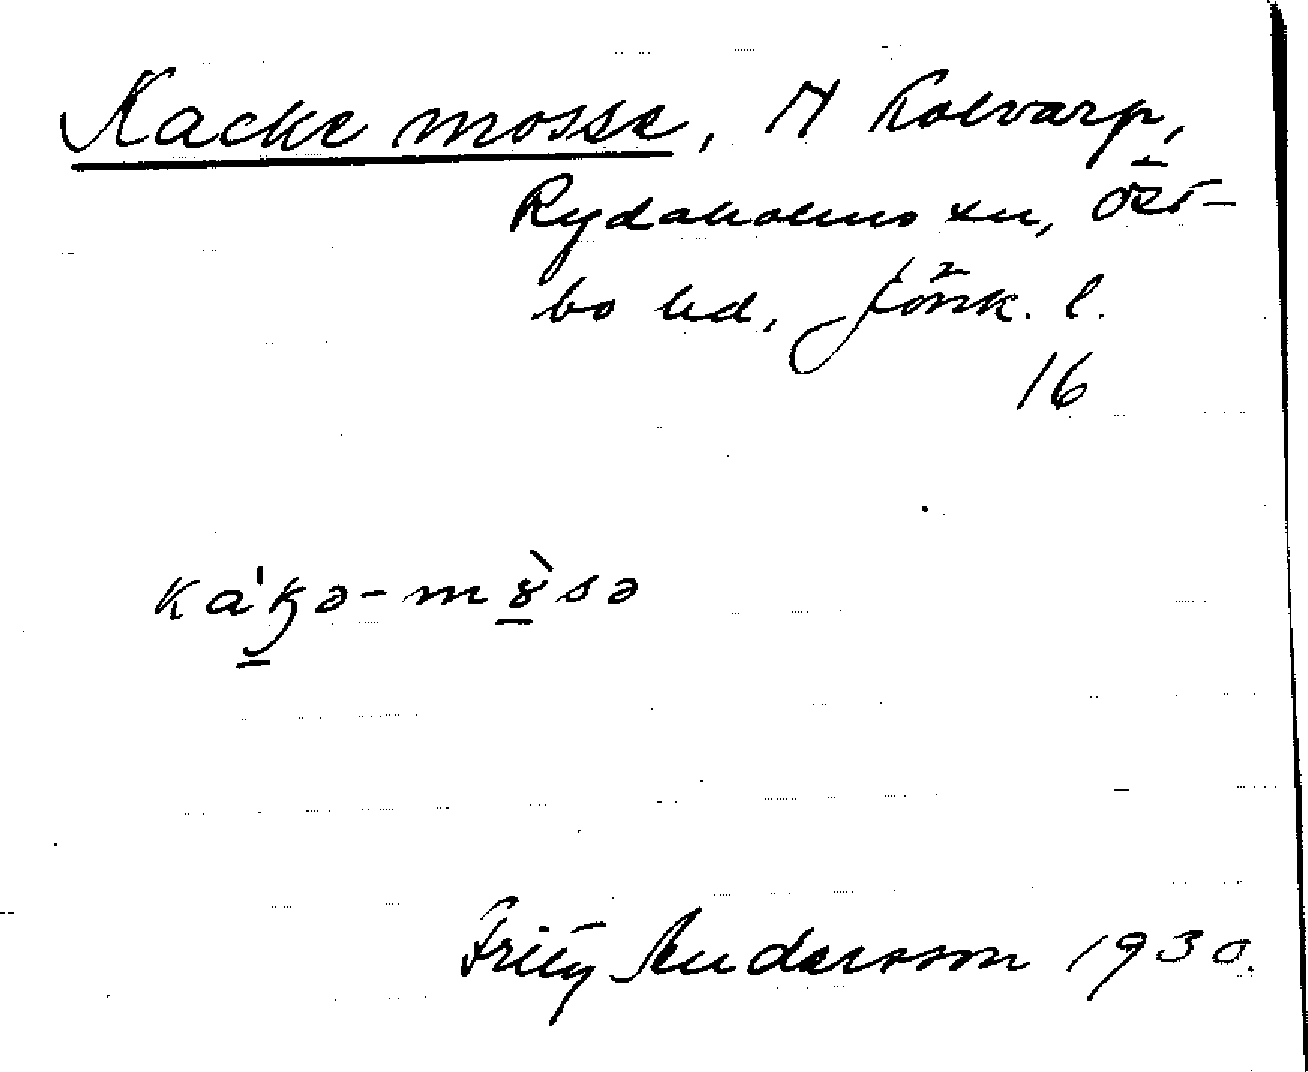 Kacke mosse, M Kolvarp,
Rydaholms sn, Öst-
bo hd, Jönk. l.
16
Fritz Andersson 1930.